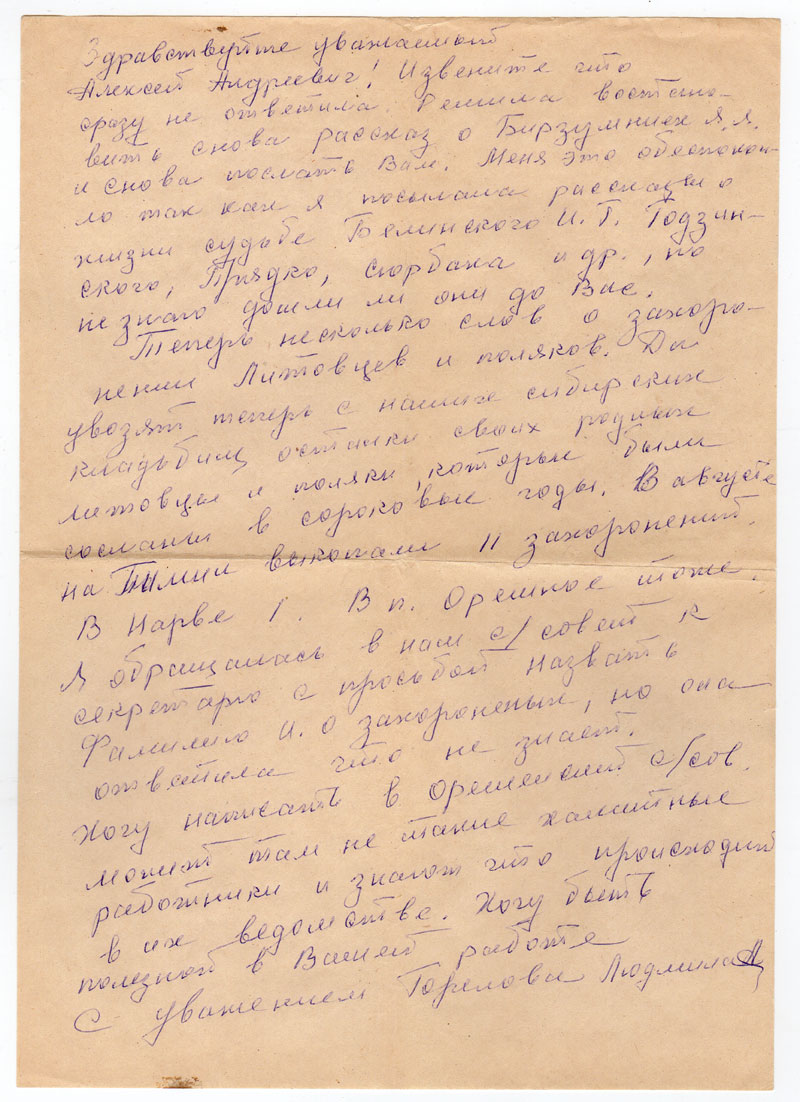 Здравствуйте уважаемый
Алексей Андреевич! Извените что
сразу не ответила. Решила востано-
вить снова рассказ о Бирзумниек Я.Я.
и снова послать Вам. Меня это обеспокои-
ло так как я посылала рассказы о
жизни судьбе Белинского И.Г. Годзин-
ского, Прядко, Скорбача и др., но
не знаю дошли ли они до Вас.
Теперь несколько слов о захоро-
нении Литовцев и поляков. Да
увозят теперь с наших сибирских
кладбищ останки своих родных
литовцы и поляки, которые были
сосланы в сороковые годы. В августе
на Тымил выкопали 11 захоронений.
В Нарве 1. В п. Орешное тоже.
Я обращалась в нам с/совет к
секретарю с просьбой назвать
Фамилию И.о захороненых, но она
ответила что не знает.
Хочу написать в Орешенский с/сов.
может там не такие халатные
работники и знают что происходит
в их ведомстве. Хочу быть
полезной в Вашей работе
С уважением Горелова Людмила